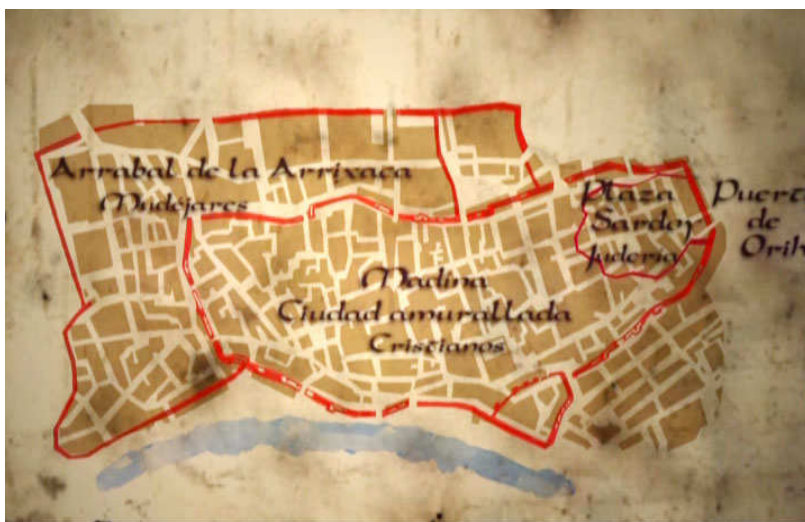 Arrabal de la Arrixaca
Mudéjares
Madina
Ciudad amurallada
Cristianos
Plaza
Sardoy
Judería
Puert
de
Orih